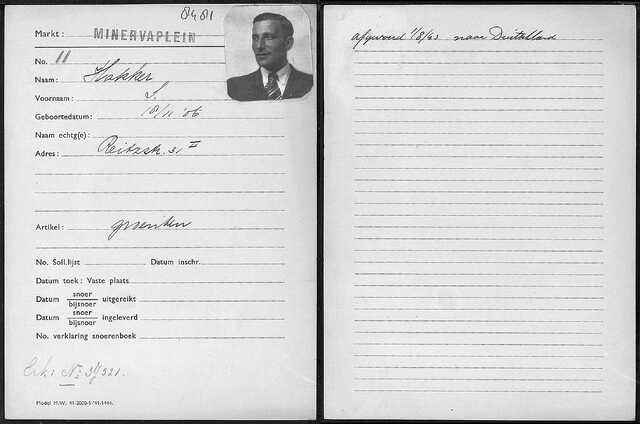 8481
Markt: MINERVAPLEIN
No. 11
Naam: Hakker
Voornaam: S
Geboortedatum: 18/11 '06
Naam echtg(e):
Adres: Reitzstr. 31 II
Artikel: groenten
No. Soll.lijst Datum inschr.
Datum toek: Vaste plaats
Datum snoer/bijsnoer uitgereikt
Datum snoer/bijsnoer ingeleverd
No. verklaring snoerenboek
Model M.W.
afgevoerd 1/8/43 naar Duitschland